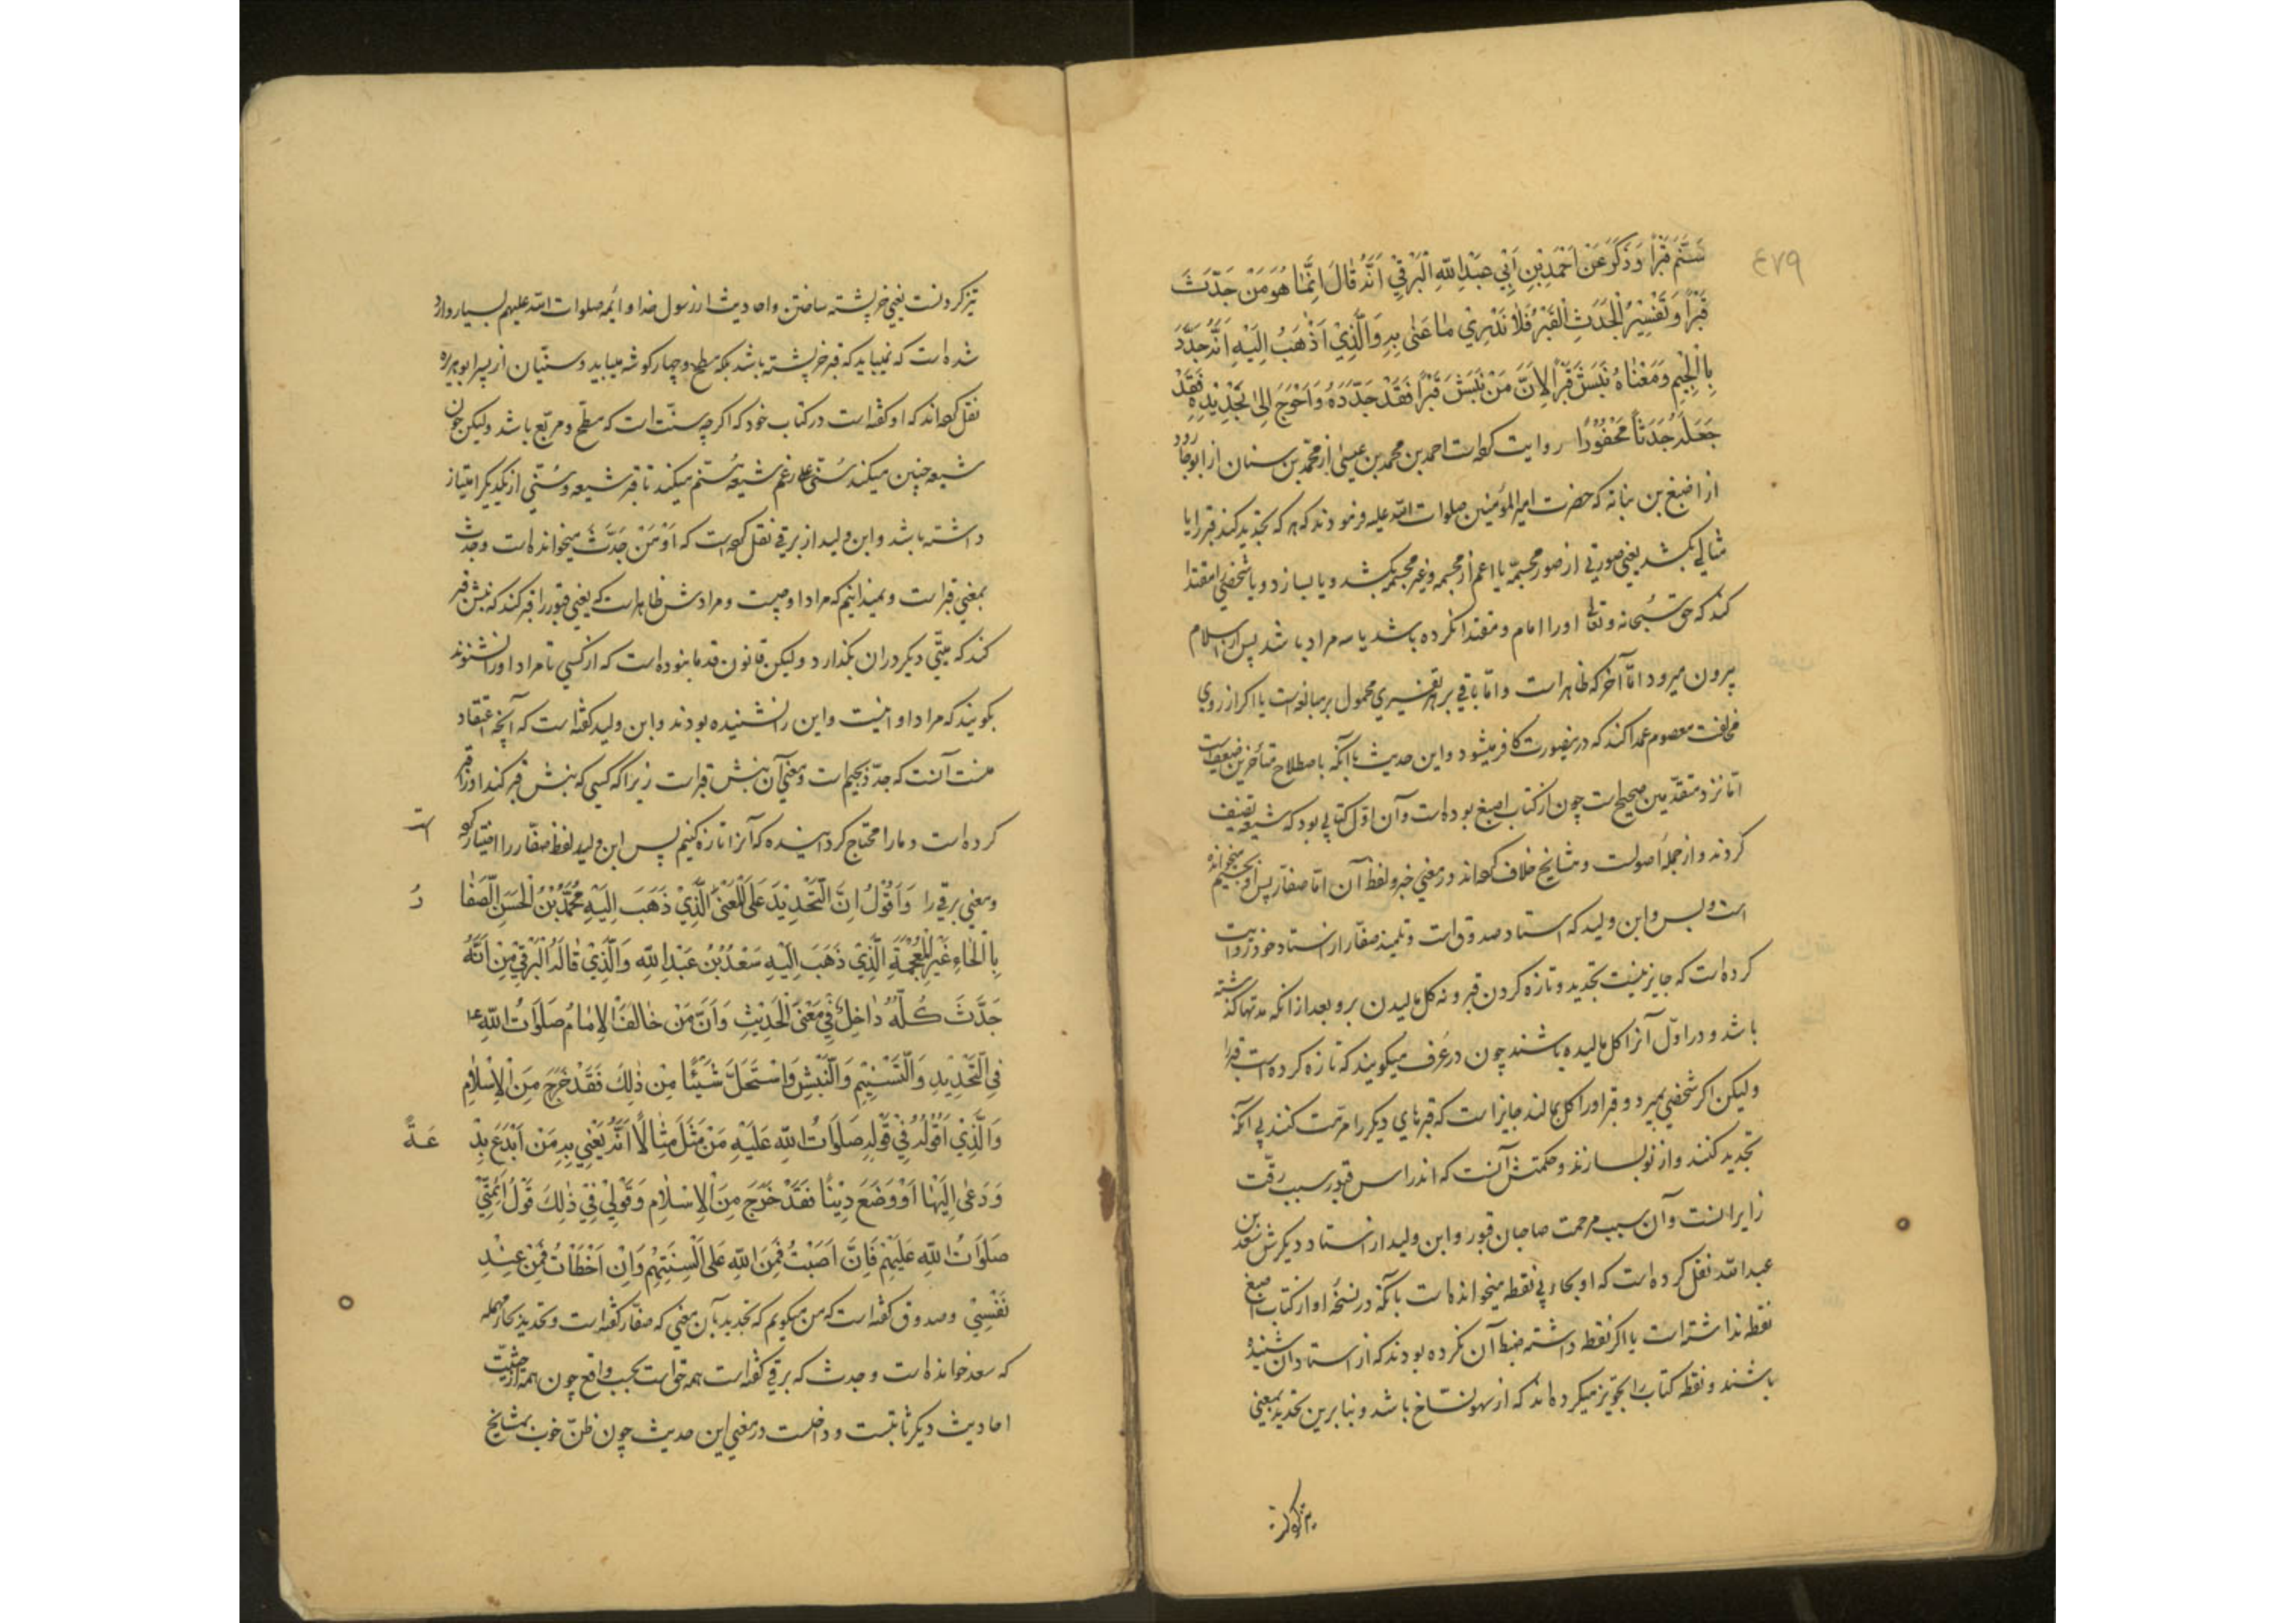 ٤٧٩
سَنَّمَ قَبْراً وَذَكَرَ عَنْ اَحْمَدَ بْنِ اَبِي عَبْدِ اللّهِ الْبَرْقِيِّ اَنَّهُ قٰالَ اِنَّمٰا هُوَ مَنْ جَدَّثَ
قَبْراً وَتَفْسِيْرُ الْجَدَثِ الْقَبْرُ فَلاٰ نَدْرِيْ مٰا عَنٰى بِهِ وَالَّذِيْ اَذْهَبُ اِلَيْهِ اَنَّهُ جَدَّدَ
بِالْجِيْمِ وَمَعْنٰاهُ نَبَشَ قَبْراً لِاَنَّ مَنْ نَبَشَ قَبْراً فَقَدْ جَدَّدَهُ وَاَحْوَجَ اِلىٰ تَجْدِيْدِهِ فَقَدْ
جَعَلَهُ جَدَثاً مَحْفُوْرًا روایت کرده است احمد بن محمد بن عیسی از محمد بن سنان از ابو جارود
از اصبغ بن نباته که حضرت امیرالمؤمنین صلوات اللّه علیه فرمودند که هر که تجدید کند قبر را یا
مثالی بکشد یعنی صورتی از صور مجسمه یا اعم از مجسمه و غیر مجسمه بکشد و یا بسازد و یا شخصی را مقتدا
کند که حق سبحانه و تعالی او را امام و مقتدا نکرده باشد یا سه مراد باشد پس از اسلام
بیرون میرود امّا آخر که ظاهر است و امّا باقی بر هر تفسیری محمول بر مبالغه است یا اگر از روی
مخالفت معصوم عمدا کند که درینصورت کافر میشود و این حدیث با آنکه باصطلاح متأخرین ضعیف است
امّا نزد متقدّمین صحیح است چون از کتاب اصبغ بوده است و آن اوّل کتابی بود که شیعه تصنیف
کردند و از جمله اصولست و مشایخ خلاف کرده‌اند در معنی خبر و لفظ آن امّا صفّار پس او بجیم میخوانده
است و بس و ابن ولید که استاد صدوق است و تلمیذ صفّار از استاد خود روایت
کرده است که جایز نیست تجدید و تازه کردن قبر و نه کل مالیدن برو بعد از آنکه مدتها گذشته
باشد و در اوّل آنرا کل مالیده باشند چون در عُرف میگویند که تازه کرده است قبر را
ولیکن اگر شخصی بمیرد و قبر او را کل بمالند جایز است که قبرهای دیگر را مرمّت کنند بی آنکه
تجدید کنند و از نو بسازند و حکمتش آنست که اندراس قبور سبب رقّت
زایرانست و آن سبب مرحمت صاحبان قبور و ابن ولید از استاد دیگرش سعد بن
عبد اللّه نقل کرده است که او بحاء بی نقطه میخوانده است با آنکه در نسخۀ او از کتاب اصبغ
نقطه نداشته است یا اگر نقطه داشته ضبط آن نکرده بودند که از استادان شنیده
باشند و نقطه کتاب را تجویز میکرده‌اند که از سهو نسّاخ باشد و بنابرین تحدید بمعنی
تیز کردنست یعنی خرپشته ساختن و احادیث از رسول خدا و ائمه صلوات اللّه علیهم بسیار وارد
شده است که نمیباید که قبر خرپشته باشد بلکه مطح و چهارگوشه میباید و سنّیان از پسر ابو هریره
نقل کرده‌اند که او گفته است در کتاب خود که اگرچه سنّت است که مسطّح و مربّع باشد ولیکن چون
شیعه چنین میکنند سُنّی علی رغم شیعه مُسنّم میکند تا قبر شیعه و سُنّی از یکدیگر امتیاز
داشته باشد و ابن ولید از برقی نقل کرده است که اَوْ مَنْ جَدَّثَ میخوانده است و جدث
بمعنی قبر است و نمیدانیم که مراد او چیست و مرادش ظاهر است که یعنی قبور را قبر کند که نبش قبر
کند که میّتی دیگر در ان بگذارد ولیکن قانون قدما بنوده است که از کسی تا مراد او را نشنوند
بگویند که مراد او اینست و این را نشنیده بودند و ابن ولید گفته است که آنچه اعتقاد
منست آنست که جدّد بجیم است و معنی آن نبش قبر است زیرا که کسی که نبش قبر کند او را قبر
کرده است و ما را محتاج گردانیده که آنرا تازه کنیم پس ابن ولید لفظ صفّار را اختیار کرده است
و معنی برقی را وَاَقُوْلُ اِنَّ التَّجْدِيْدَ عَلَى الْمَعْنَى الَّذِيْ ذَهَبَ اِلَيْهِ مُحَمَّدُ بْنُ الْحَسَنِ الصَّفّٰا رُ
بِالْحٰاءِ غَيْرِ الْمُعْجَمَةِ الَّذِيْ ذَهَبَ اِلَيْهِ سَعْدُ بْنُ عَبْدِ اللّهِ وَالَّذِيْ قٰالَهُ الْبَرْقِيُّ مِنْ اَنَّهُ
جَدَّثَ كُلَّهُ دٰاخِلٌ فِيْ مَعْنَى الْحَدِيْثِ وَاَنَّ مَنْ خٰالَفَ الْاِمٰامُ صَلَوٰاتُ اللّهِ ع
فِى التَّجْدِيْدِ وَالتَّسْنِيْمِ وَالنَّبْشِ وَاسْتَحَلَّ شَيْئًا مِنْ ذٰلِكَ فَقَدْ خَرَجَ مِنَ الْاِسْلاٰمِ
وَالَّذِيْ اَقُوْلُهُ فِيْ قَوْلِهِ صَلَوٰاتُ اللّهِ عَلَيْهِ مَنْ مَثَّلَ مِثٰالًا اَنَّهُ يَعْنِي بِهِ مَنْ اَبْدَعَ بِدْ عَةً
وَدَعٰى اِلَيْهٰا اَوْ وَضَعَ دِيْنًا فَقَدْ خَرَجَ مِنَ الْاِسْلاٰمِ وَقَوْلِيْ فِيْ ذٰلِكَ قَوْلُ اَئِمَّتِيْ
صَلَوٰاتُ اللّهِ عَلَيْهِمْ فَاِنْ اَصَبْتُ فَمِنَ اللّهِ عَلىٰ اَلْسِنَتِهِمْ وَاِنْ اَخْطَأْتُ فَمِنْ عِنْدِ
نَفْسِيْ و صدوق گفته است که من میگویم که تجدید بآن معنی که صفّار گفته است و تحدید بحاء مهمله
که سعد خوانده است و جدث که برقی گفته است همه حق است بحسب واقع چون همه از حیثیّت
احادیث دیگر ثابتست و داخلست در معنی این حدیث چون ظنّ خوب بمشایخ